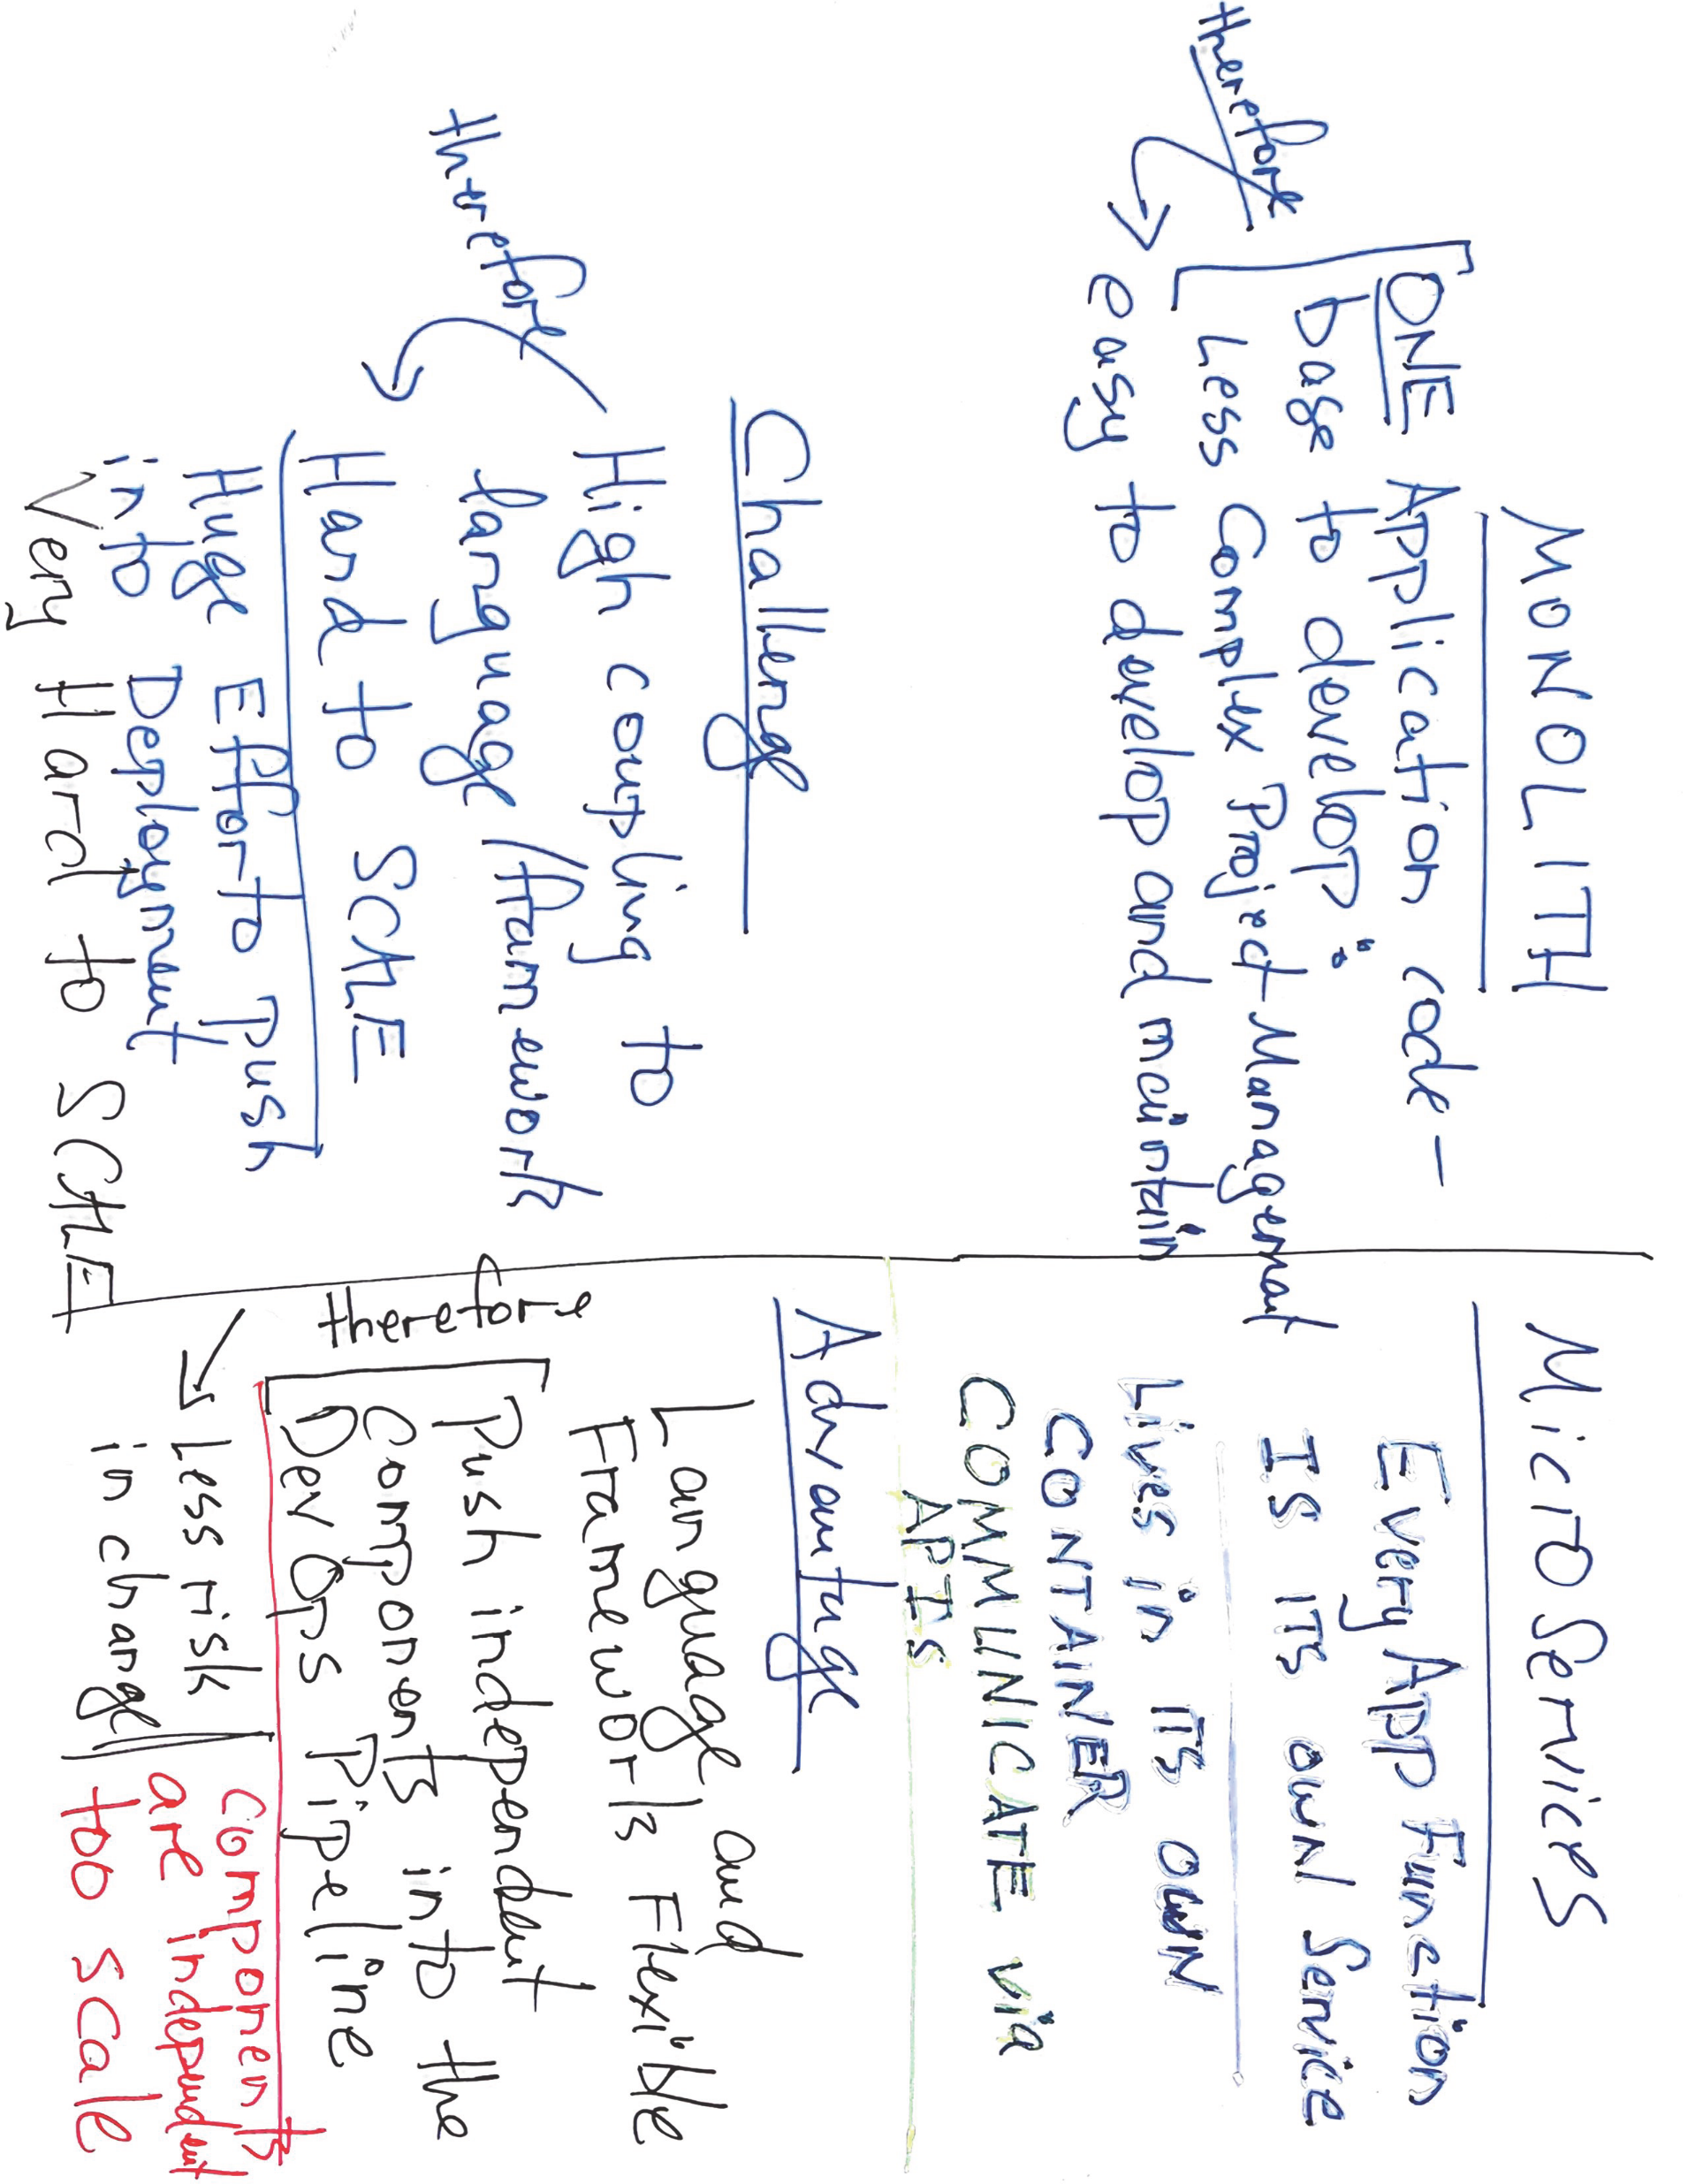 MONOLITH
ONE Application code -
base to develop.
Less Complex Project Management
therefore
easy to develop and maintain
Challenge
High coupling to
language/framework
therefore
Hard to SCALE
Huge Effort to Push
into Deployment
Very Hard to SCALE
MicroServices
Every App Function
Is ITS own Service
Lives in ITS OWN
CONTAINER
COMMUNICATE via
APIs
Advantage
Language and
Frameworks Flexible
Push independent
Components into the
DevOps Pipeline
therefore
Less risk
in change
Components
are independent
too scale